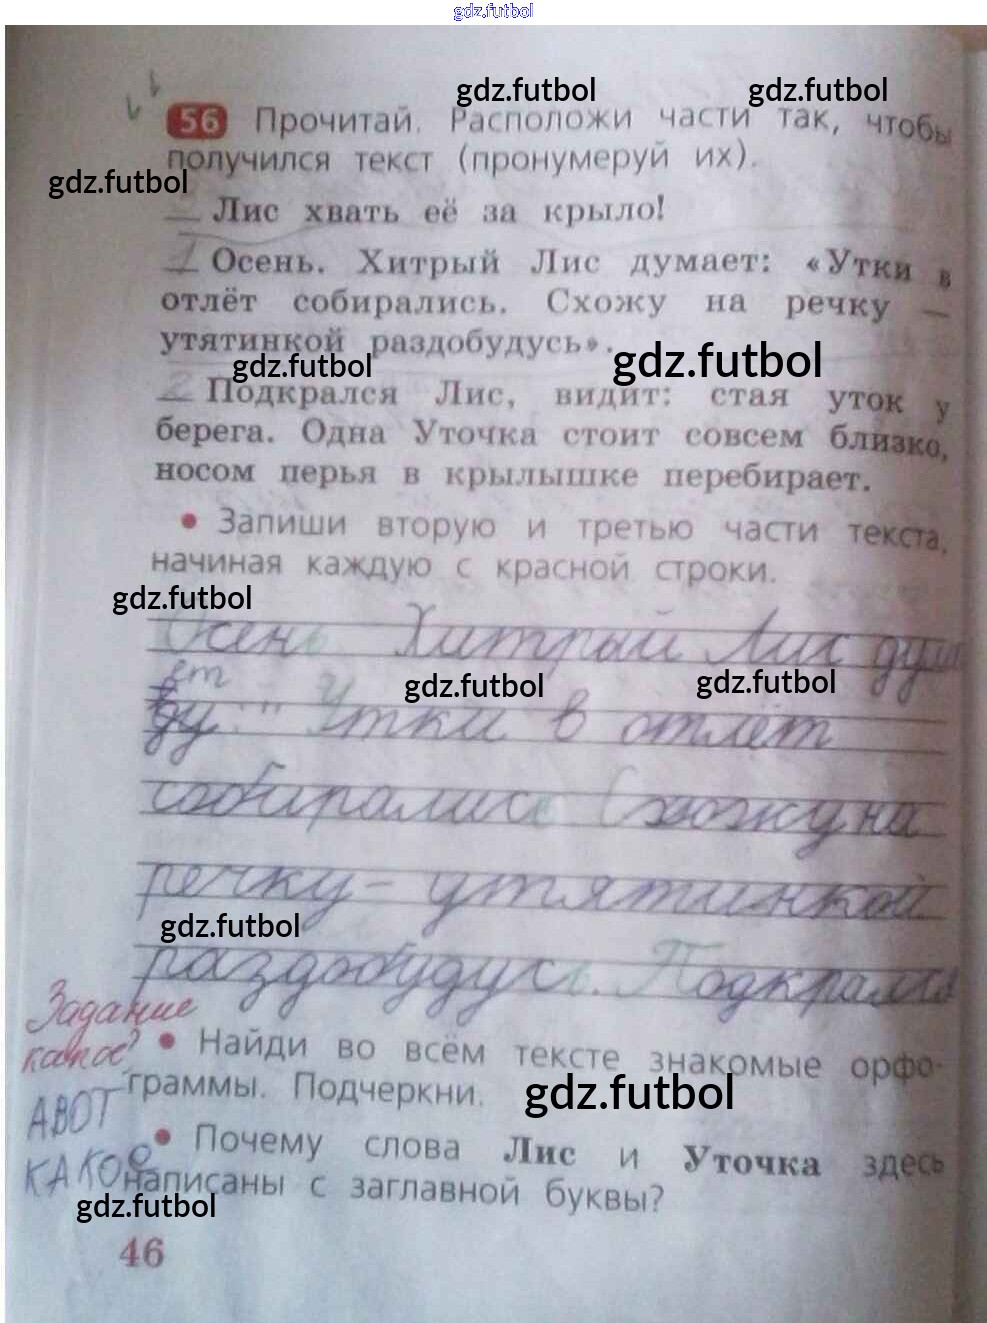 gdz.futbol
gdz.futbol gdz.futbol
56 Прочитай. Расположи части так, чтобы
получился текст (пронумеруй их).
gdz.futbol
— Лис хвать её за крыло!
1 Осень. Хитрый Лис думает: «Утки в
отлёт собирались. Схожу на речку —
утятинкой раздобудусь».
gdz.futbol gdz.futbol
2 Подкрался Лис, видит: стая уток у
берега. Одна Уточка стоит совсем близко,
носом перья в крылышке перебирает.
• Запиши вторую и третью части текста,
начиная каждую с красной строки.
gdz.futbol
Осень Хитрый Лис дума
ет
ду: " Утки в отлёт
gdz.futbol gdz.futbol
собирались Схожу на
речку – утятинкой
gdz.futbol
раздобудусь. Подкрался
Задание
какое?
• Найди во всём тексте знакомые орфо-
граммы. Подчеркни.
gdz.futbol
АВОТ
КАКОе
• Почему слова Лис и Уточка здесь
написаны с заглавной буквы?
gdz.futbol
46